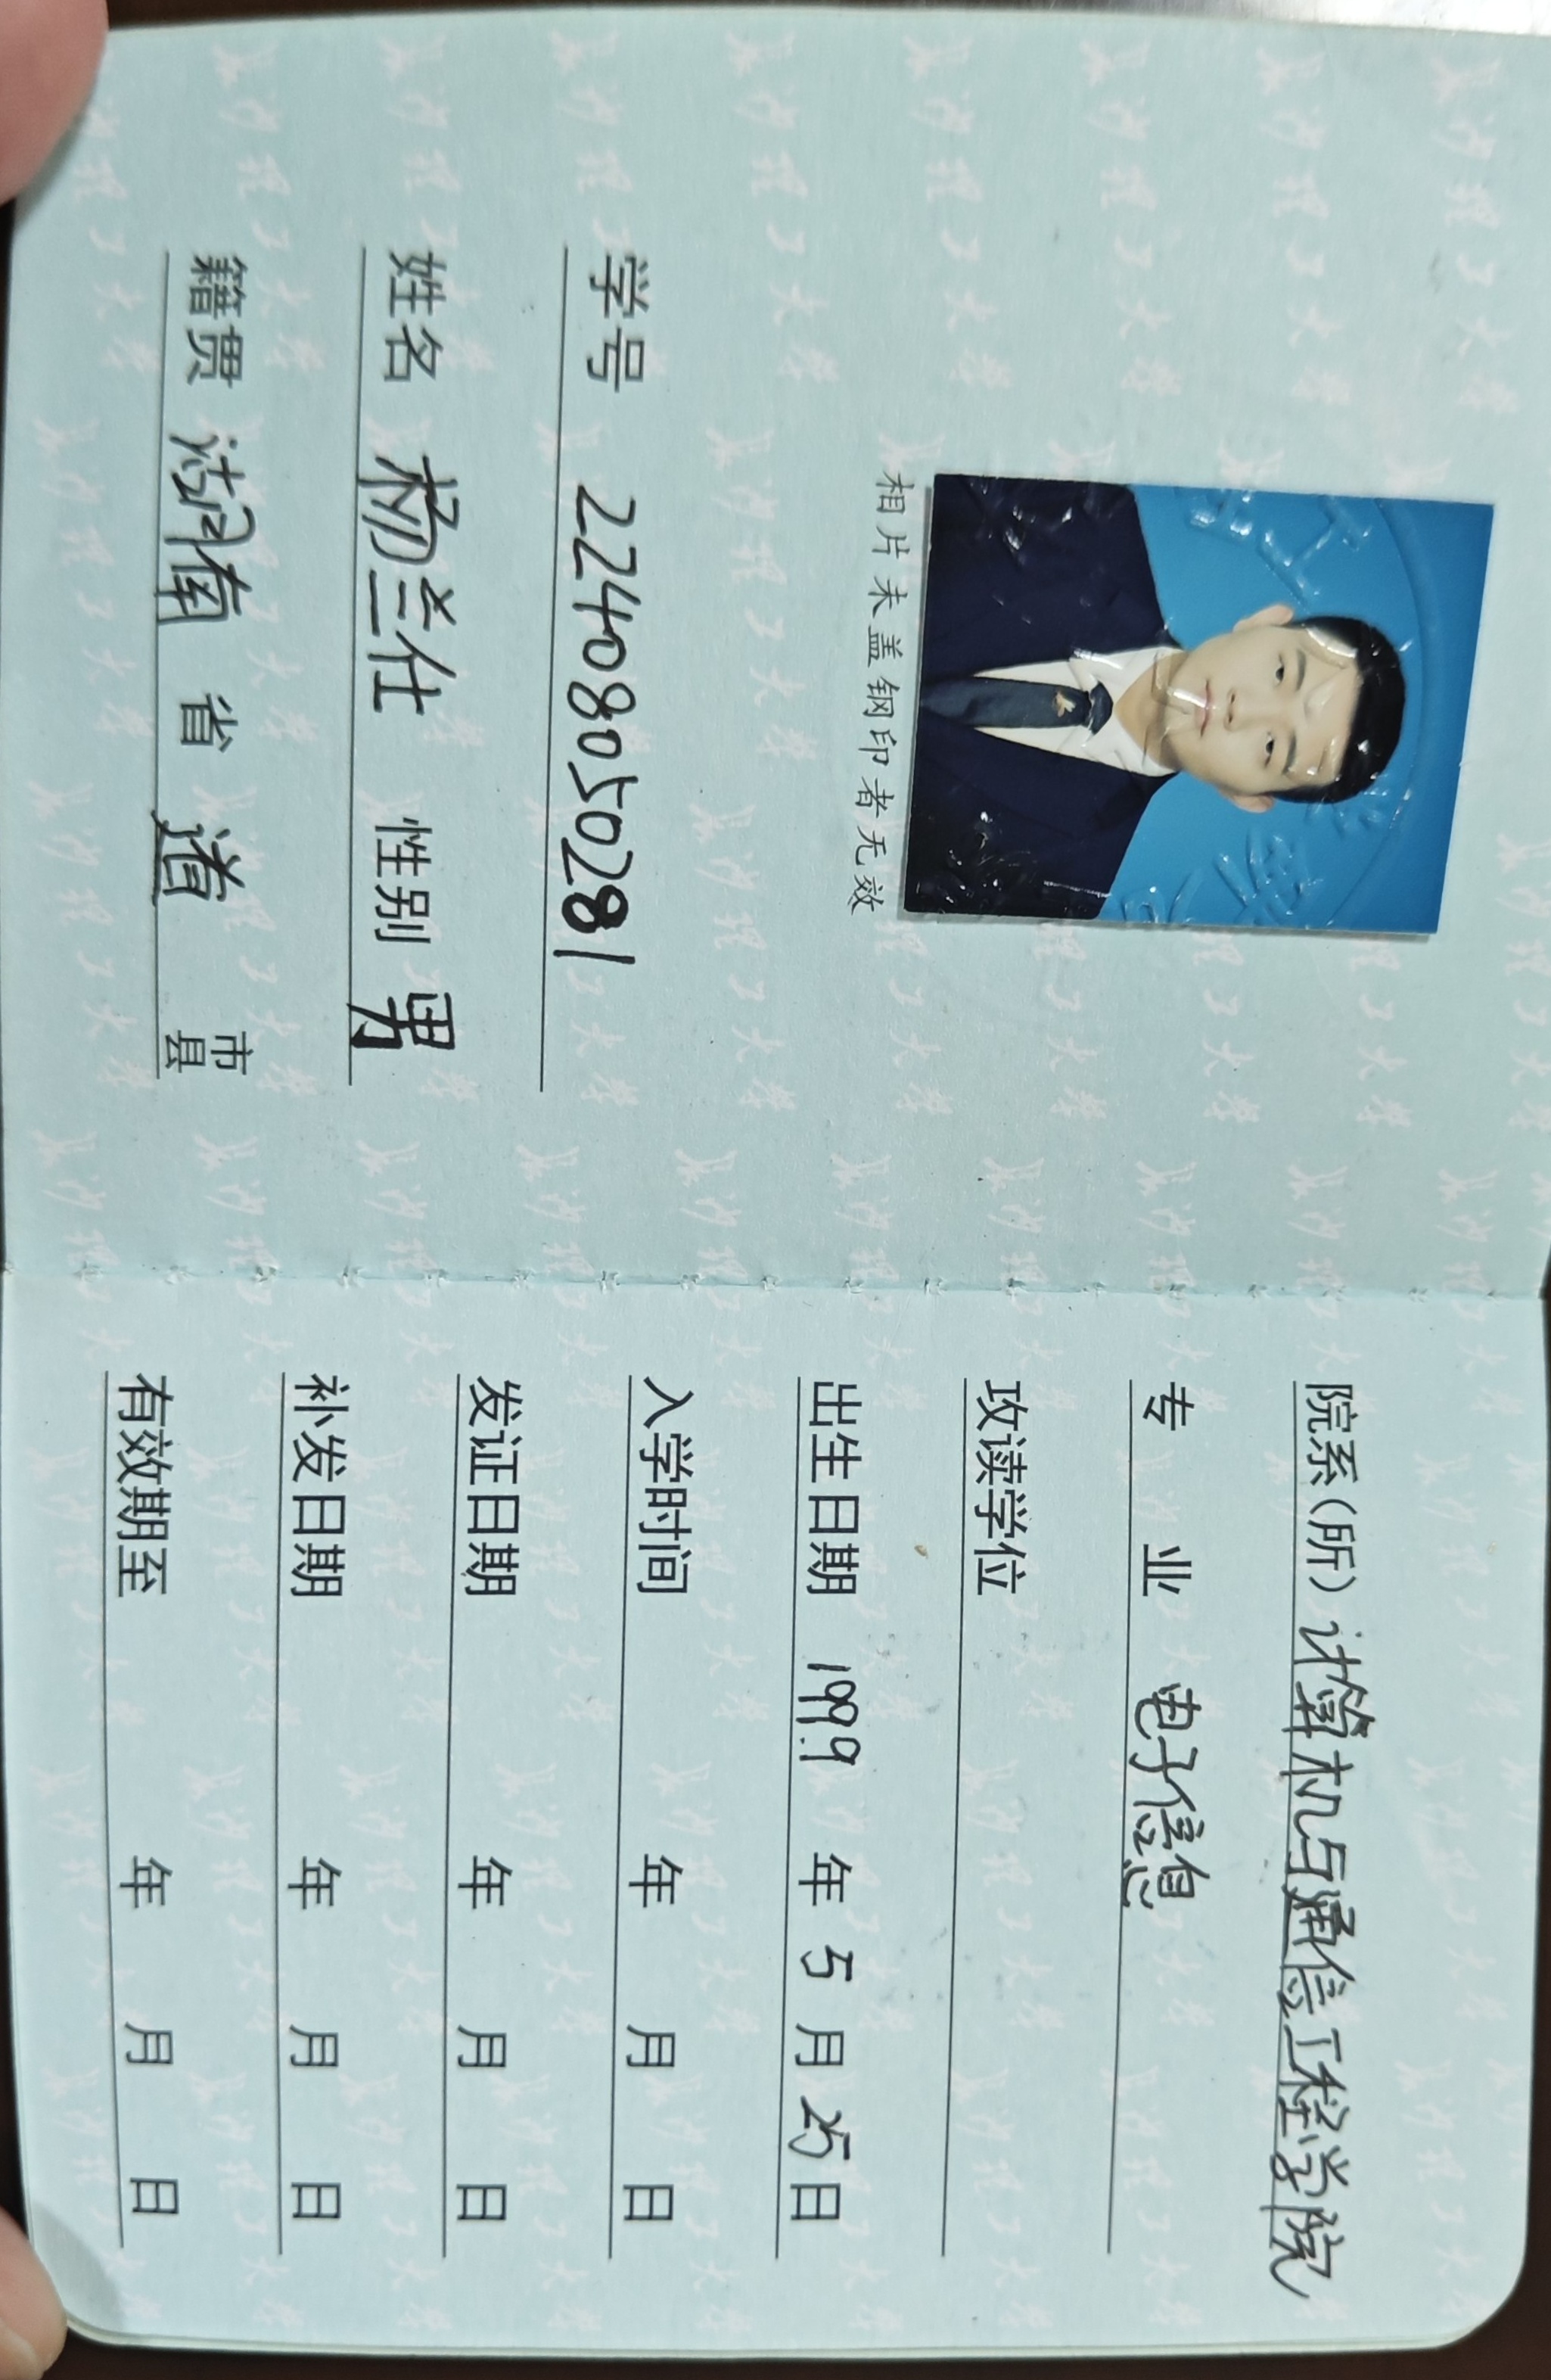 相片未盖钢印者无效
学号 22408050281
姓名 杨兰仕 性别 男
籍贯 湖南 省 道 市县
院系(所) 计算机与通信工程学院
专业 电子信息
攻读学位
出生日期 1999 年 5 月 25 日
入学时间 年 月 日
发证日期 年 月 日
补发日期 年 月 日
有效期至 年 月 日